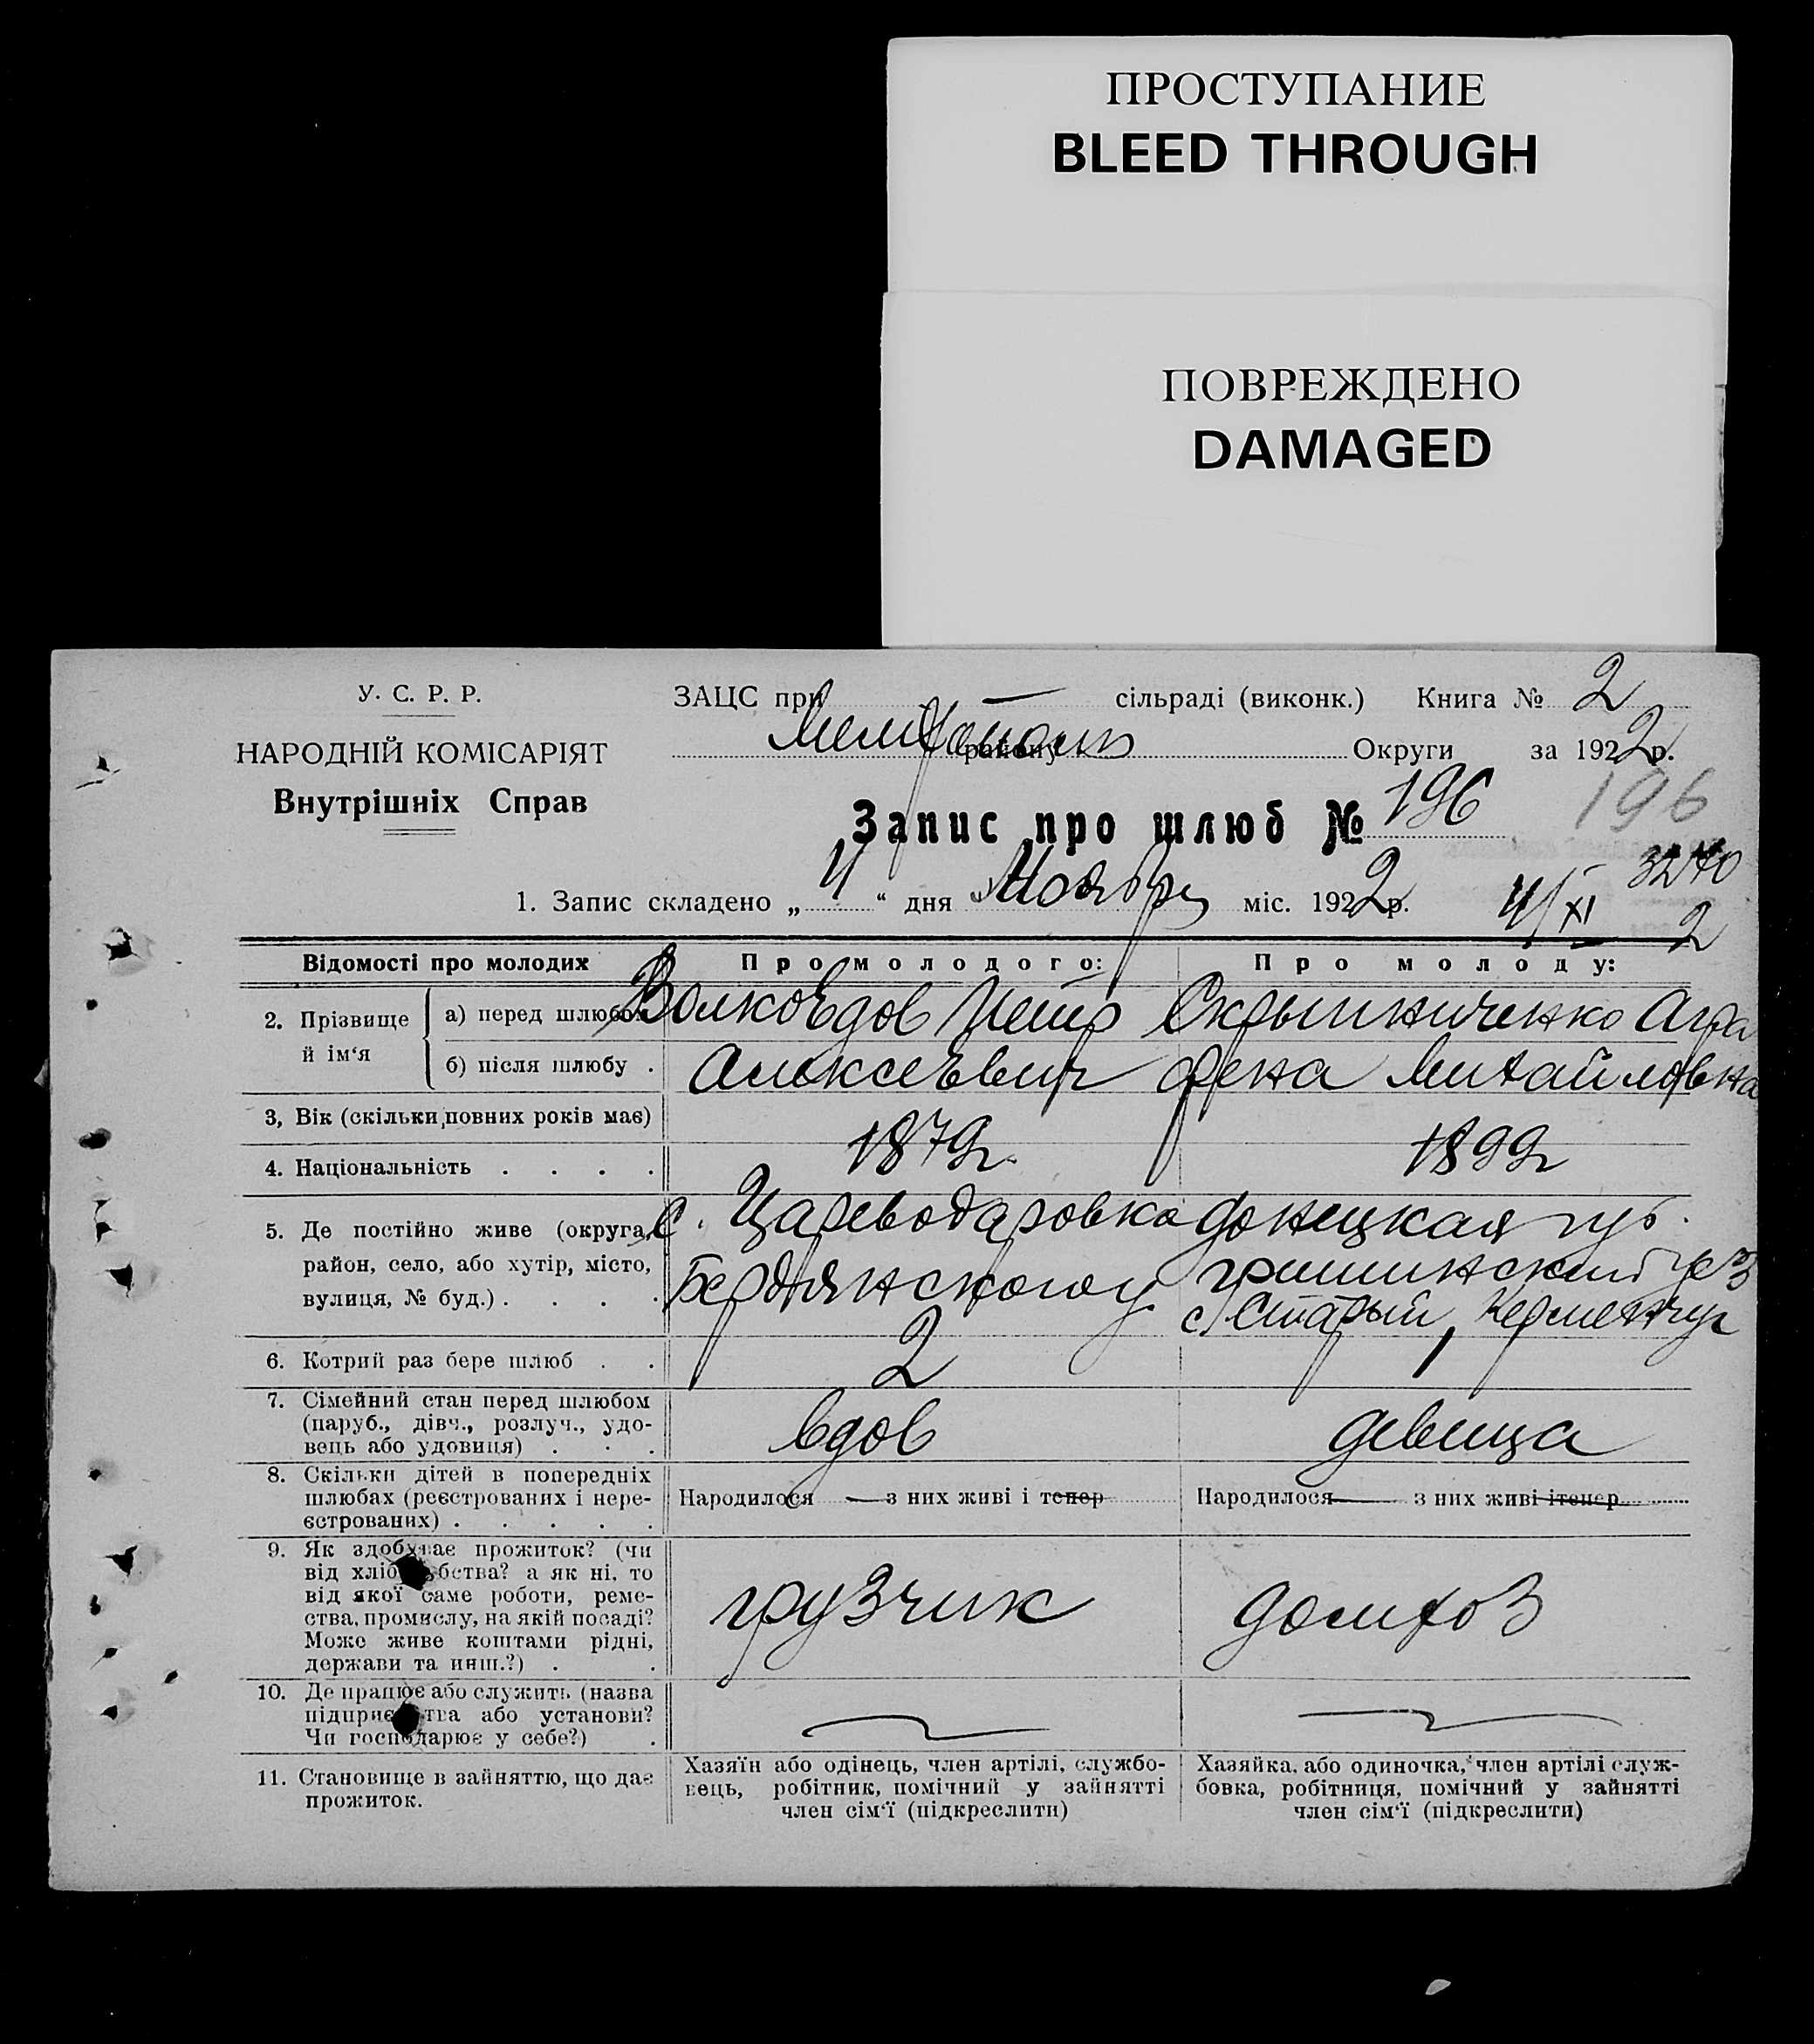 ПРОСТУПАНИЕ
BLEED THROUGH
ПОВРЕЖДЕНО
DAMAGED
У. С. Р. Р.
НАРОДНІЙ КОМІСАРІЯТ
Внутрішніх Справ
ЗАЦС при — сільраді (виконк.) Книга № 2
району Округи за 1922 р.
Запис про шлюб № 196
196
3270
1. Запис складено „ “ дня Ноября міс. 1922 р. XI 2
Відомості про молодих Про молодого: Про молоду:
2. Прізвище й ім‘я
а) перед шлюбом Волковдов Петр Скрыпниченко Агра
б) після шлюбу . Алексеевич фена Михайловна
3, Вік (скільки повних років має) 1879г. 1899г
4. Національність . . . .
5. Де постійно живе (округа, с. Цареводаровка донецкая губ.
район, село, або хутір, місто, Бердянского у гришинский уез
вулиця, № буд.) . . . . с. Старый Керменчуг
6. Котрий раз бере шлюб . . 2 1
7. Сімейний стан перед шлюбом
(паруб., дівч., розлуч., удо-
вець або удовиця) . . . вдов девица
8. Скільки дітей в попередніх
шлюбах (реєстрованих і нере-
єстрованих) . . . . .
Народилося — з них живі і тепер Народилося — з них живі і тепер
9. Як здобуває прожиток? (чи
від хліборобства? а як ні, то
від якої саме роботи, реме-
ства, промислу, на якій посаді?
Може живе коштами рідні,
держави та инш.?) . .
грузчик домхоз
10. Де працює або служить (назва
підприємства або установи?
Чи господарює у себе?) .
11. Становище в зайняттю, що дає
прожиток.
Хазяїн або одінець, член артілі, службо-
вець, робітник, помічний у зайнятті
член сім‘ї (підкреслити)
Хазяйка, або одиночка, член артілі служ-
бовка, робітниця, помічний у зайнятті
член сім‘ї (підкреслити)